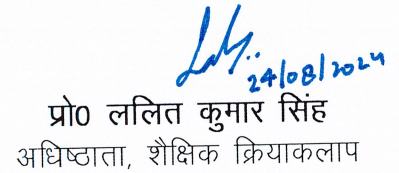 24/08/2024
प्रो0 ललित कुमार सिंह
अधिष्ठाता, शैक्षिक क्रियाकलाप